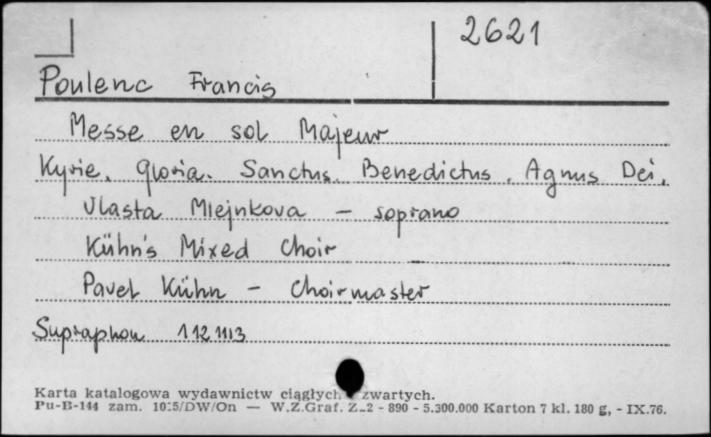 2621
Poulenc Francis
Messe en sol Majeur
Kyrie. Gloria. Sanctus. Benedictus. Agnus Dei.
Vlasta Mlejnkova - soprano
Kühn's Mixed Choir
Pavel Kühn - Choirmaster
Supraphon 112 1113
Karta katalogowa wydawnictw ciągłych zwartych.
Pu-B-144 zam. /DW/On — W.Z.Graf. - 890 - 5.300.000 Karton 7 kl. 180 g, - IX.76.